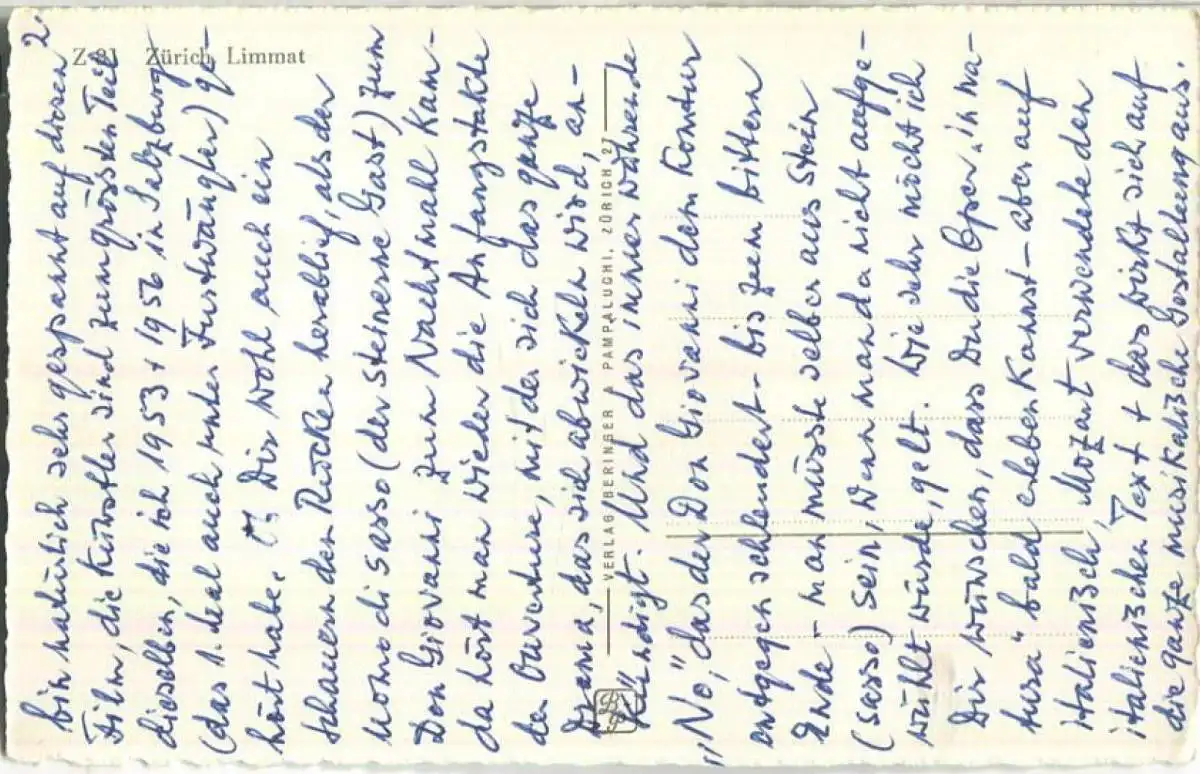 2.
Z 21 Zürich, Limmat
bin natürlich sehr gespannt auf diesen
Film, die Künstler sind zum grössten Teil
dieselben, die ich 1953 + 1956 in Salzburg
(das 1. Mal auch unter Furtwängler) ge-
hört habe. Ob Dir wohl auch ein
Schauern den Rücken herablief, als der
Uomo di sasso (der steinerne Gast) zum
Don Giovanni zum Nachtmahl kam -
da hört man wieder die Anfangstakte
der Ouverture, mit der sich das ganze
Drama, das sich abwickeln wird, an-
kündigt. Und das immerwährende
"No", das der Don Giovanni dem Komtur
entgegen schleudert - bis zum bittern
Ende - man müsste selber aus Stein
(sasso) sein, wenn man da nicht aufge-
wühlt würde, gelt. Wie sehr möcht ich
Dir wünschen, dass Du die Oper "in na-
tura" bald erleben kannst - aber auf
italienisch, Mozart verwendete den
italienischen Text + das wirkt sich auf
die ganze musikalische Gestaltung aus.
VERLAG BERINGER & PAMPALUCHI, ZÜRICH 27